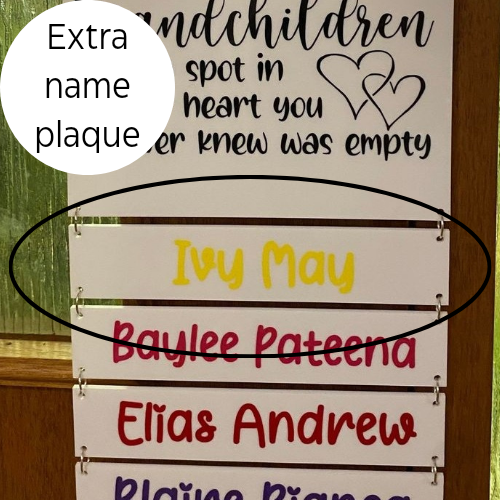 Extra
name
plaque
ndchildren
spot in
heart you
er knew was empty
Ivy May
Baylee Pateena
Elias Andrew